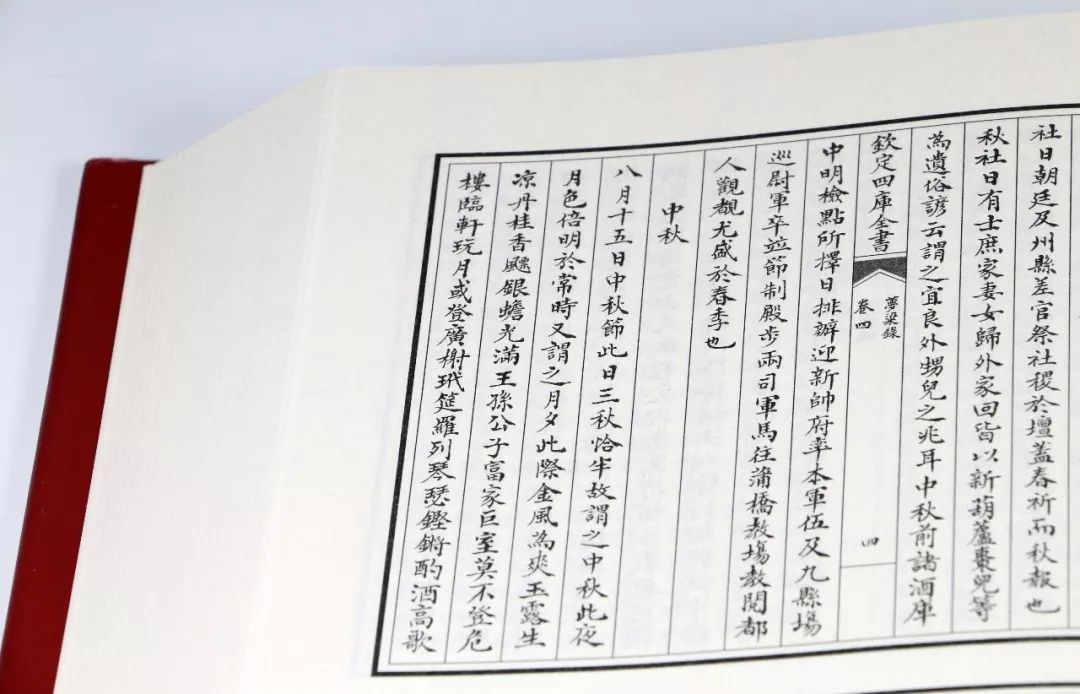 社日朝廷及州縣差官祭社稷於壇蓋春祈而秋報也
秋社日有士庶家妻女歸外家回皆以新葫蘆棗兒等
為遺俗諺云謂之宜良外甥兒之兆耳中秋前諸酒庫
欽定四庫全書
夢粱錄
卷四
四
中明檢點所擇日排辦迎新帥府率本軍伍及九縣場
巡尉軍卒並節制殿步兩司軍馬往蒲橋教場教閱都
人觀覩尤盛於春季也
中秋
八月十五日中秋節此日三秋恰半故謂之中秋此夜
月色倍明於常時又謂之月夕此際金風為爽玉露生
凉丹桂香飄銀蟾光滿王孫公子富家巨室莫不登危
樓臨軒玩月或登廣榭玳筵羅列琴瑟鏗鏘酌酒高歌